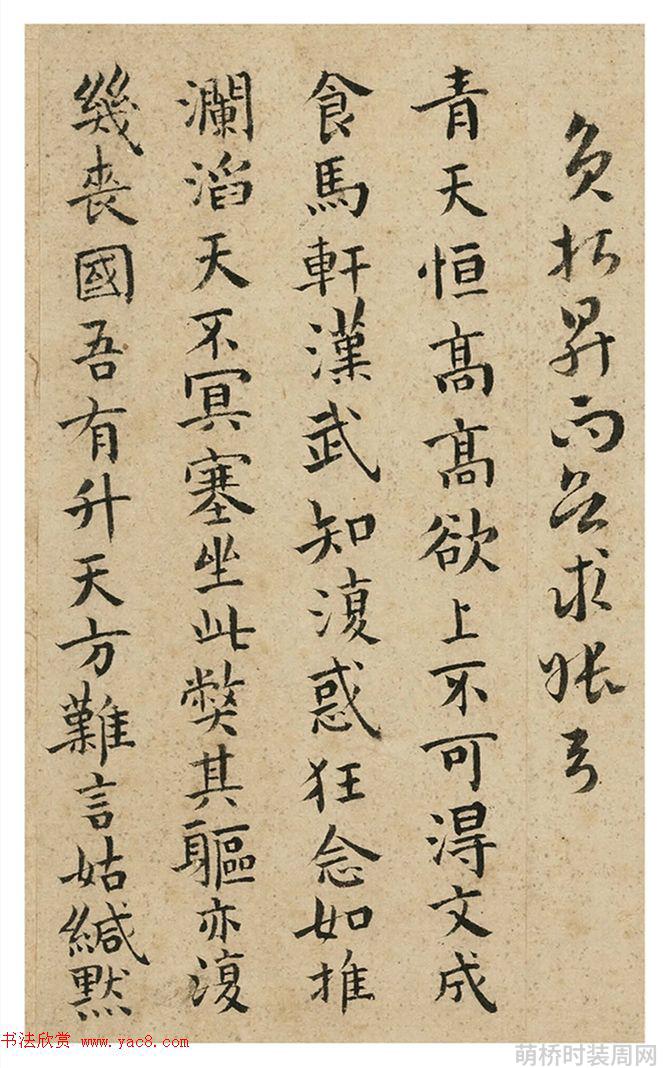 昇而求
青天恒高高欲上不可得文成
食馬軒漢武知復惑狂念如推
瀾滔天不冥塞坐此獘其軀亦復
幾喪國吾有升天方難言姑緘默
书法欣赏 www.yac8.com
萌桥时装周网